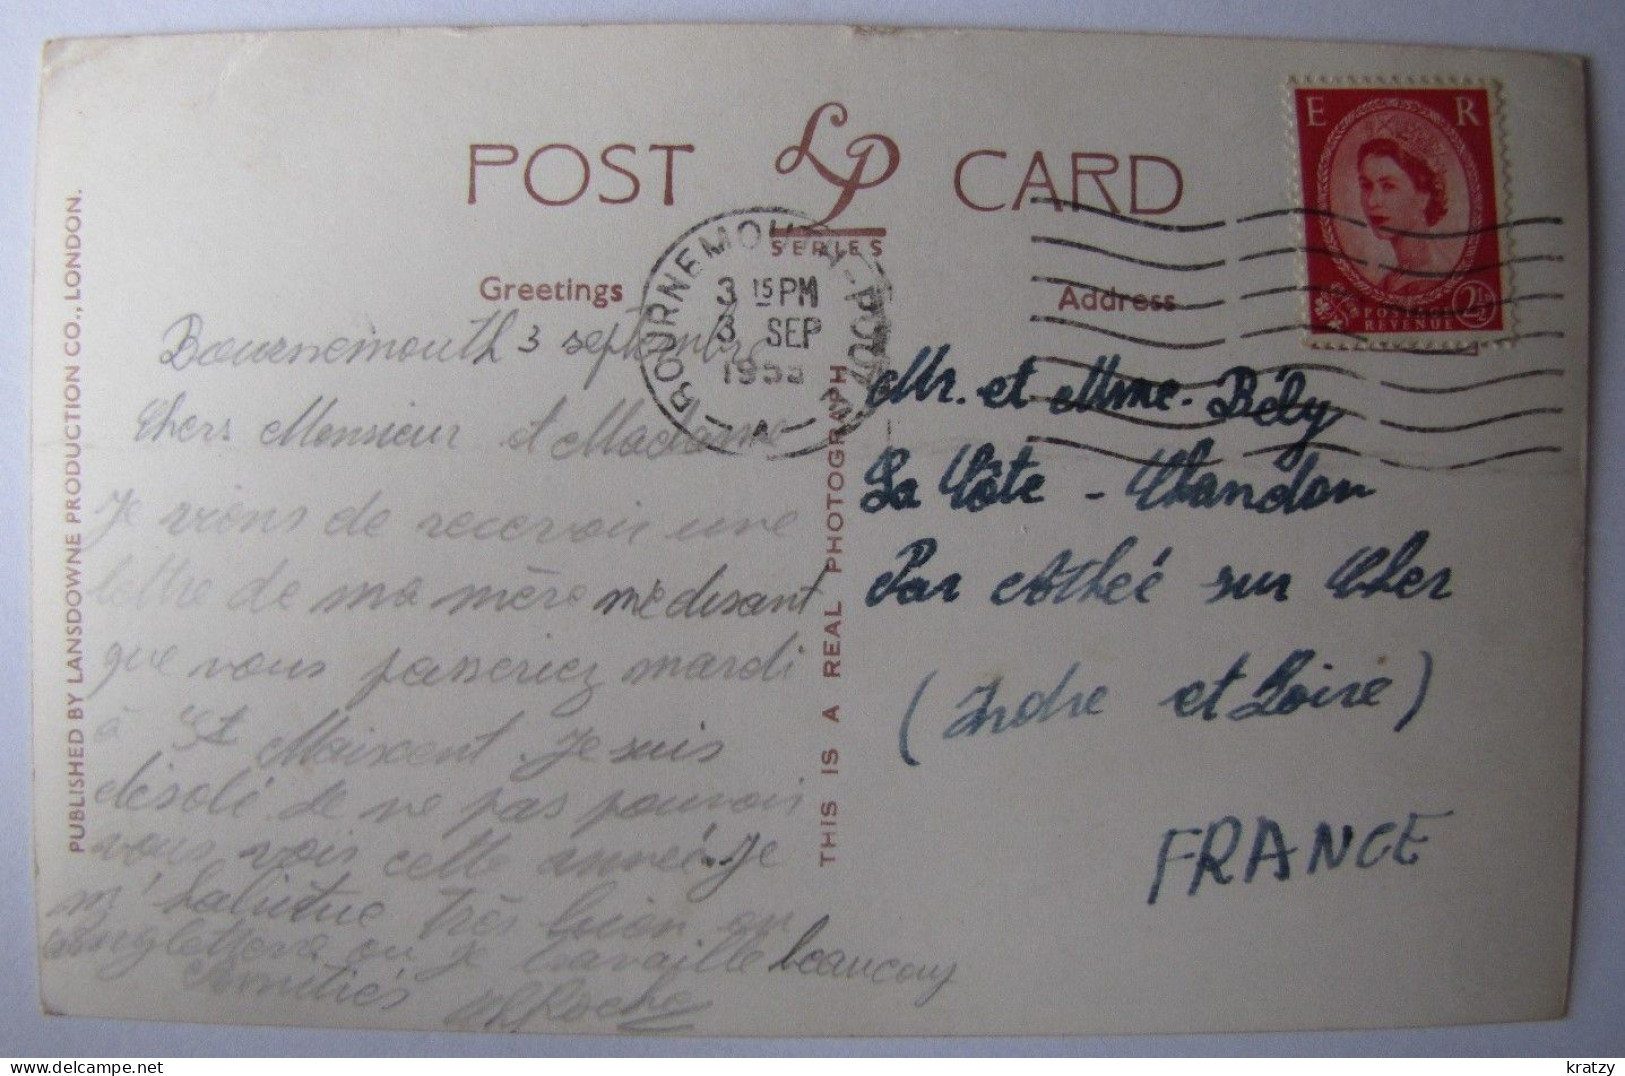 POST LP CARD
SERIES
Greetings
Address
PUBLISHED BY LANSDOWNE PRODUCTION CO., LONDON.
THIS IS A REAL PHOTOGRAPH
BOURNEMOUTH-POOLE
3 15 PM
3 SEP
A
E R
POSTAGE
REVENUE
2½D
Bournemouth 3 septembre
Chers Monsieur et Madame
Je viens de recevoir une
lettre de ma mère me disant
que vous passeriez mardi
à St Maixent. Je suis
désolé de ne pas pouvoir
vous voir cette année. Je
m'habitue très bien en
Angleterre ou je travaille beaucoup
Amitiés Roche
Mr. et Mme. Bély
La Côte - Chandon
Par Athée sur Cher
(Indre et Loire)
FRANCE
kratzy